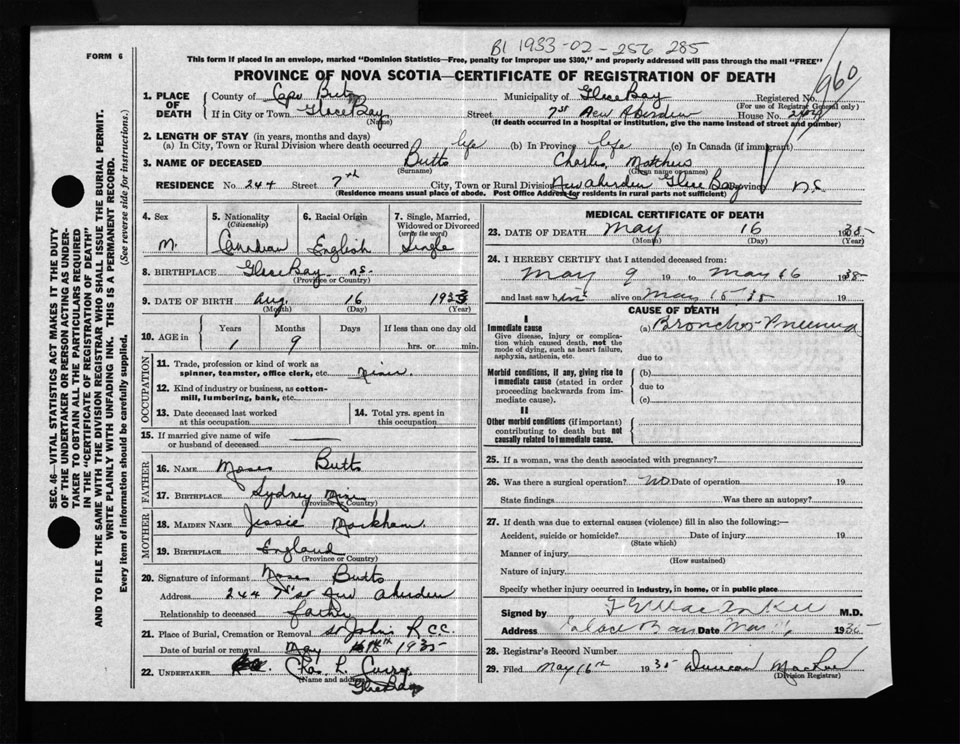 B1 1933-02-256 285
960
FORM 6
This form if placed in an envelope, marked "Dominion Statistics—Free, penalty for improper use $300," and properly addressed will pass through the mail "FREE"
PROVINCE OF NOVA SCOTIA—CERTIFICATE OF REGISTRATION OF DEATH
1. PLACE OF DEATH County of Cape Municipality of Glace Bay Registered No.
(For use of Registrar General only)
If in City or Town Glace Bay Street 7 St New Aberdeen House No. 244
(Name) (If death occurred in a hospital or institution, give the name instead of street and number)
2. LENGTH OF STAY (in years, months and days)
(a) In City, Town or Rural Division where death occurred life (b) In Province life (c) In Canada (if immigrant)
3. NAME OF DECEASED Butts Charles Mathews
(Surname) (Given name or names)
RESIDENCE No. 244 Street 7th City, Town or Rural Division New Aberdeen Glace Bay Province N.S.
(Residence means usual place of abode. Post Office Address for residents in rural parts not sufficient)
4. Sex 5. Nationality 6. Racial Origin 7. Single, Married, Widowed or Divorced
(Citizenship) (write the word)
M. Canadian English Single
8. BIRTHPLACE Glace Bay N.S.
(Province or Country)
9. DATE OF BIRTH Aug. 16 1933
(Month) (Day) (Year)
10. AGE in Years Months Days If less than one day old
1 9 hrs. or min.
OCCUPATION
11. Trade, profession or kind of work as spinner, teamster, office clerk, etc.
12. Kind of industry or business, as cotton-mill, lumbering, bank, etc.
13. Date deceased last worked at this occupation 14. Total yrs. spent in this occupation
15. If married give name of wife or husband of deceased
FATHER
16. NAME Moses Butts
17. BIRTHPLACE Sydney Mines
(Province or Country)
MOTHER
18. MAIDEN NAME Jessie Markham
19. BIRTHPLACE England
(Province or Country)
20. Signature of informant Moses Butts
Address 244 7 St New Aberdeen
Relationship to deceased father
21. Place of Burial, Cremation or Removal St John R.C.C.
Date of burial or removal May 18th 1935
22. UNDERTAKER Chas. L. Curry
(Name and address) Glace Bay
MEDICAL CERTIFICATE OF DEATH
23. DATE OF DEATH May 16 1935
(Month) (Day) (Year)
24. I HEREBY CERTIFY that I attended deceased from:
May 9 19 to May 16 1935
and last saw him alive on May 15 35 19
CAUSE OF DEATH
I
Immediate cause (a) Broncho-Pneumonia
Give disease, injury or complication which caused death, not the mode of dying, such as heart failure, asphyxia, asthenia, etc.
due to
Morbid conditions, if any, giving rise to immediate cause (stated in order proceeding backwards from immediate cause).
(b)
due to
(c)
II
Other morbid conditions (if important) contributing to death but not causally related to immediate cause.
25. If a woman, was the death associated with pregnancy?
26. Was there a surgical operation? NO Date of operation 19
State findings Was there an autopsy?
27. If death was due to external causes (violence) fill in also the following:—
Accident, suicide or homicide? Date of injury 19
(State which)
Manner of injury
(How sustained)
Nature of injury
Specify whether injury occurred in industry, in home, or in public place
Signed by M.D.
Address Glace Bay Date 1935
28. Registrar's Record Number
29. Filed May 16th 1935 Duncan MacRae
(Division Registrar)
SEC. 46—VITAL STATISTICS ACT MAKES IT THE DUTY
OF THE UNDERTAKER OR PERSON ACTING AS UNDER-
TAKER TO OBTAIN ALL THE PARTICULARS REQUIRED
IN THE "CERTIFICATE OF REGISTRATION OF DEATH"
AND TO FILE THE SAME WITH THE DIVISION REGISTRAR WHO SHALL ISSUE THE BURIAL PERMIT.
WRITE PLAINLY WITH UNFADING INK. THIS IS A PERMANENT RECORD.
Every item of information should be carefully supplied. (See reverse side for instructions.)